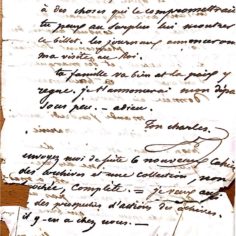 à des choses qui le compromettrait
tu peux au surplus lui montrer
le billet. les journaux annonceront
ma visite au Roi.
ta famille va bien et la paix y
règne. je t'annoncerai mon dépa
sous peu. — adieu.
ton charles.
envoye moi de suite 6 nouveaux cahiers
des archives et une collection, non
, complète. = je veux aussi
des prospectus d'actions de
il y en a chez vous. —